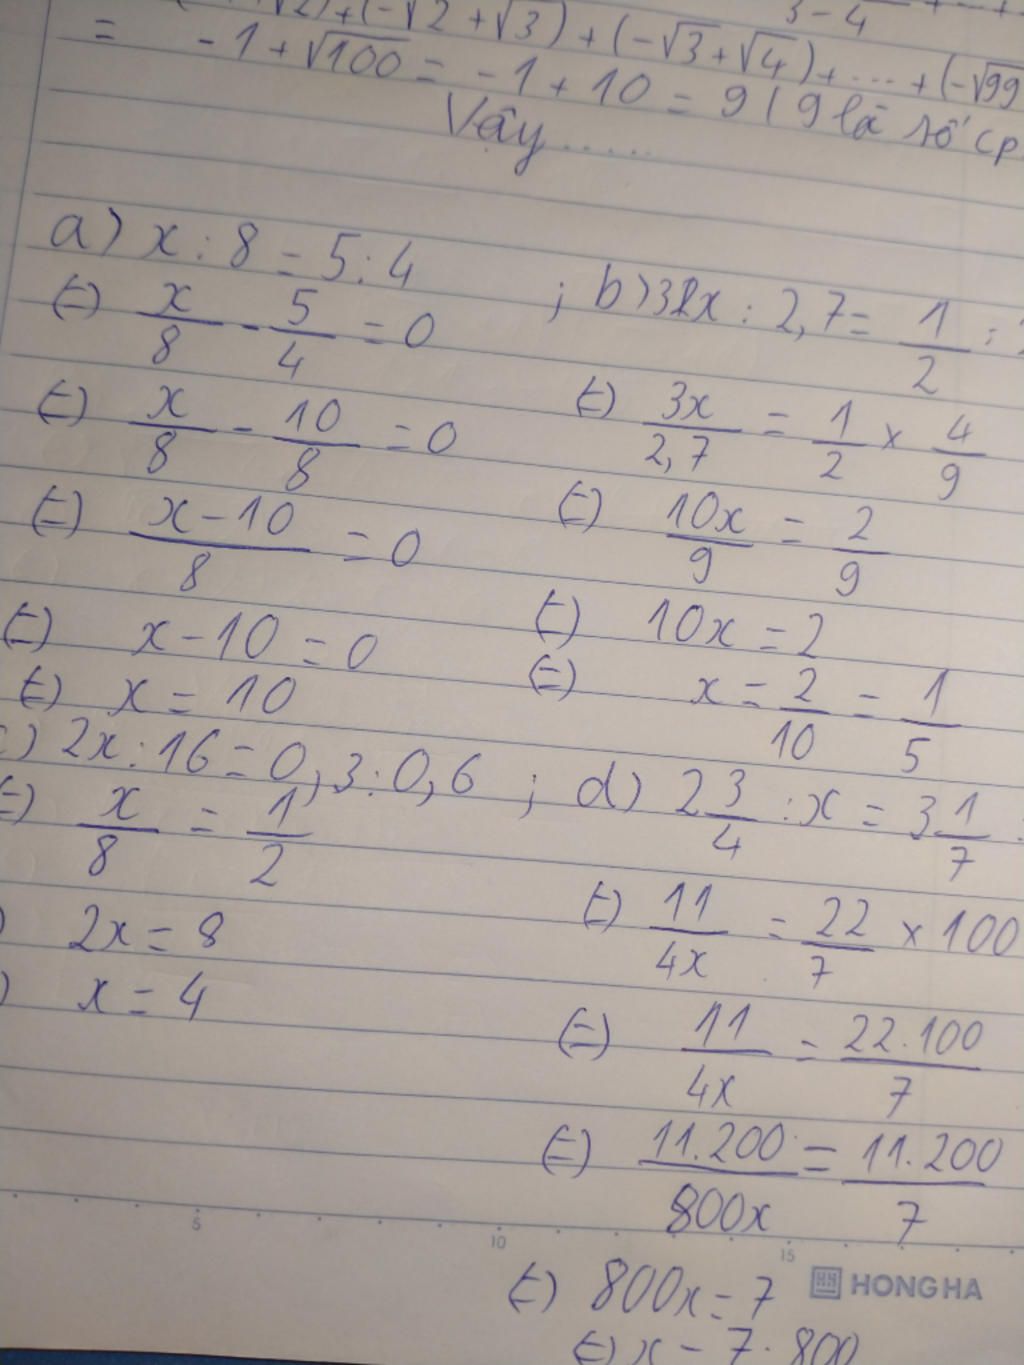 √2) + (-√2 + √3) + (-√3 + √4) + ... + (-√99
3 - 4
= -1 + √100 = -1 + 10 = 9 ( 9 là số cp
Vậy .....
a) x : 8 = 5 : 4
(=) x/8 - 5/4 = 0
(=) x/8 - 10/8 = 0
(=) (x - 10)/8 = 0
(=) x - 10 = 0
(=) x = 10
; b) 3x : 2,7 = 1/2 :
(=) 3x/2,7 = 1/2 × 4/9
(=) 10x/9 = 2/9
(=) 10x = 2
(=) x = 2/10 = 1/5
c) 2x : 16 = 0,3 : 0,6
(=) x/8 = 1/2
) 2x = 8
) x = 4
; d) 2 3/4 : x = 3 1/7 :
(=) 11/4x = 22/7 × 100
(=) 11/4x = 22.100/7
(=) 11.200/800x = 11.200/7
(=) 800x = 7
(=) x = 7.800
5 10 15
HONG HA